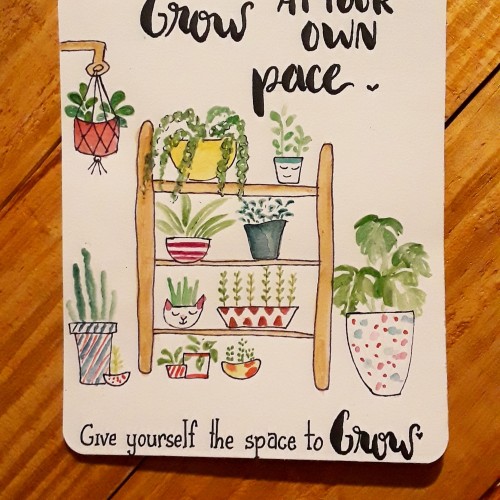 Grow AT YOUR
OWN
pace.
Give yourself the space to Grow